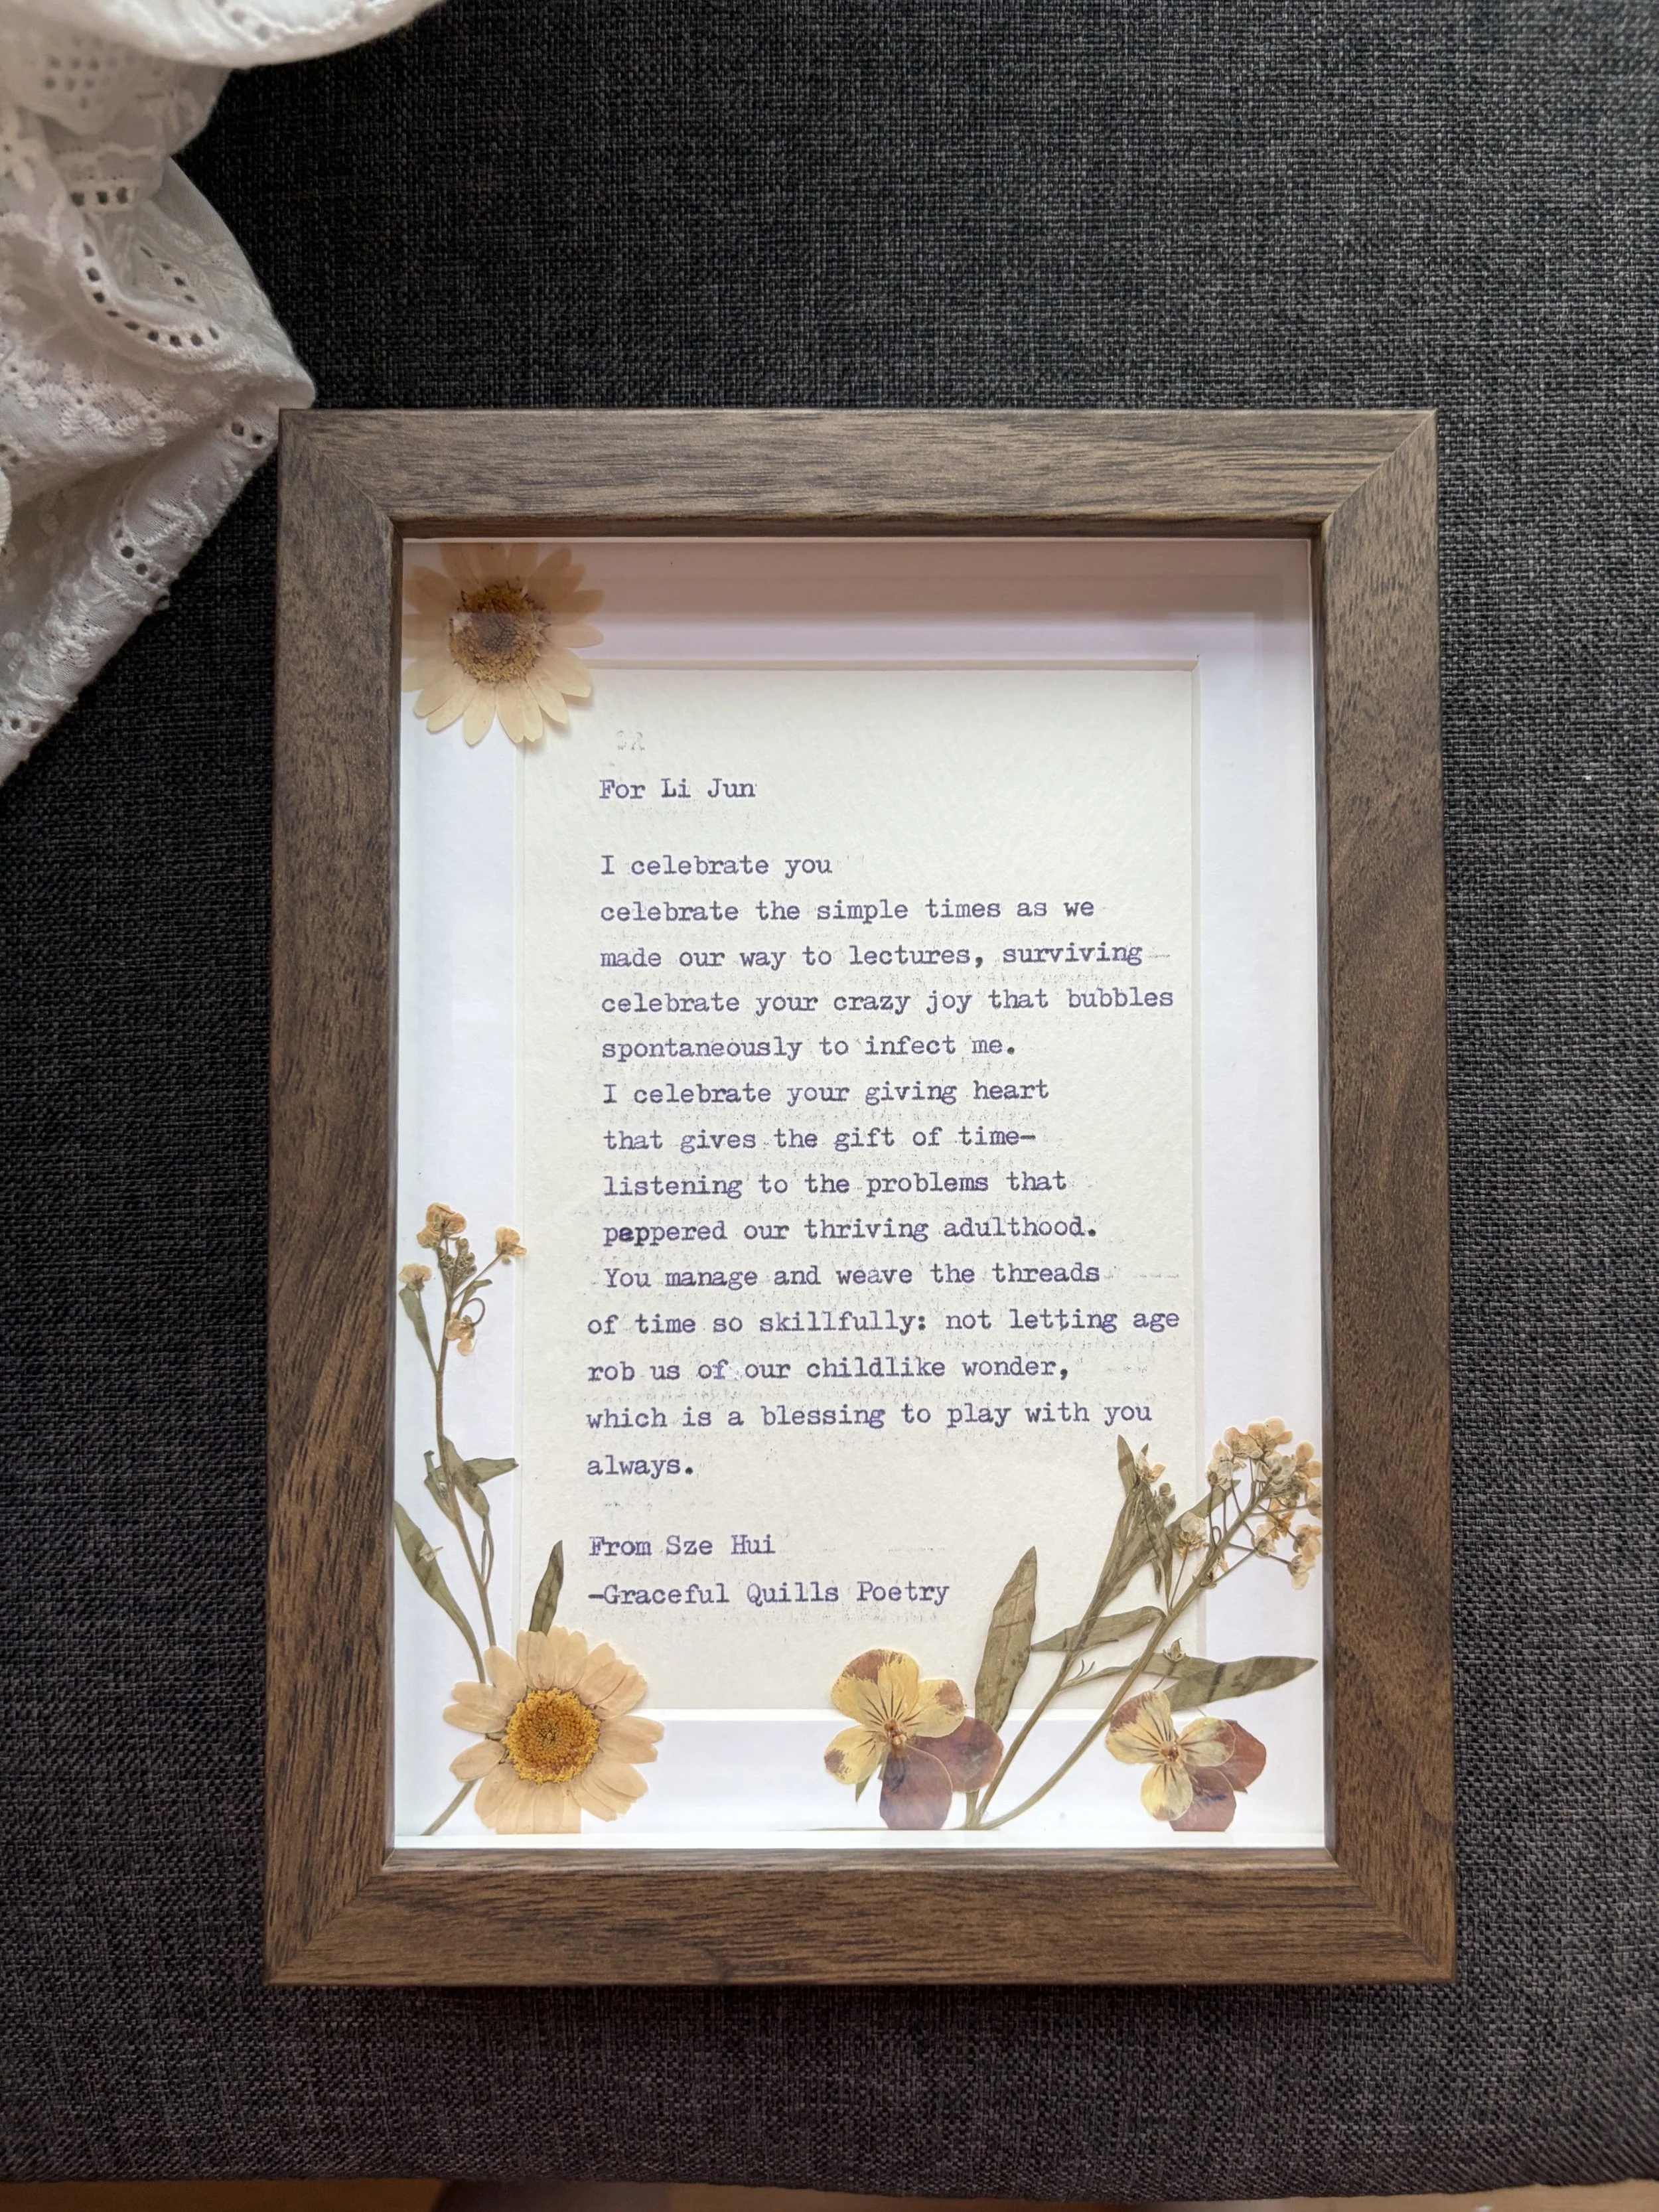 For Li Jun
I celebrate you
celebrate the simple times as we
made our way to lectures, surviving
celebrate your crazy joy that bubbles
spontaneously to infect me.
I celebrate your giving heart
that gives the gift of time-
listening to the problems that
peppered our thriving adulthood.
You manage and weave the threads
of time so skillfully: not letting age
rob us of our childlike wonder,
which is a blessing to play with you
always.
From Sze Hui
-Graceful Quills Poetry